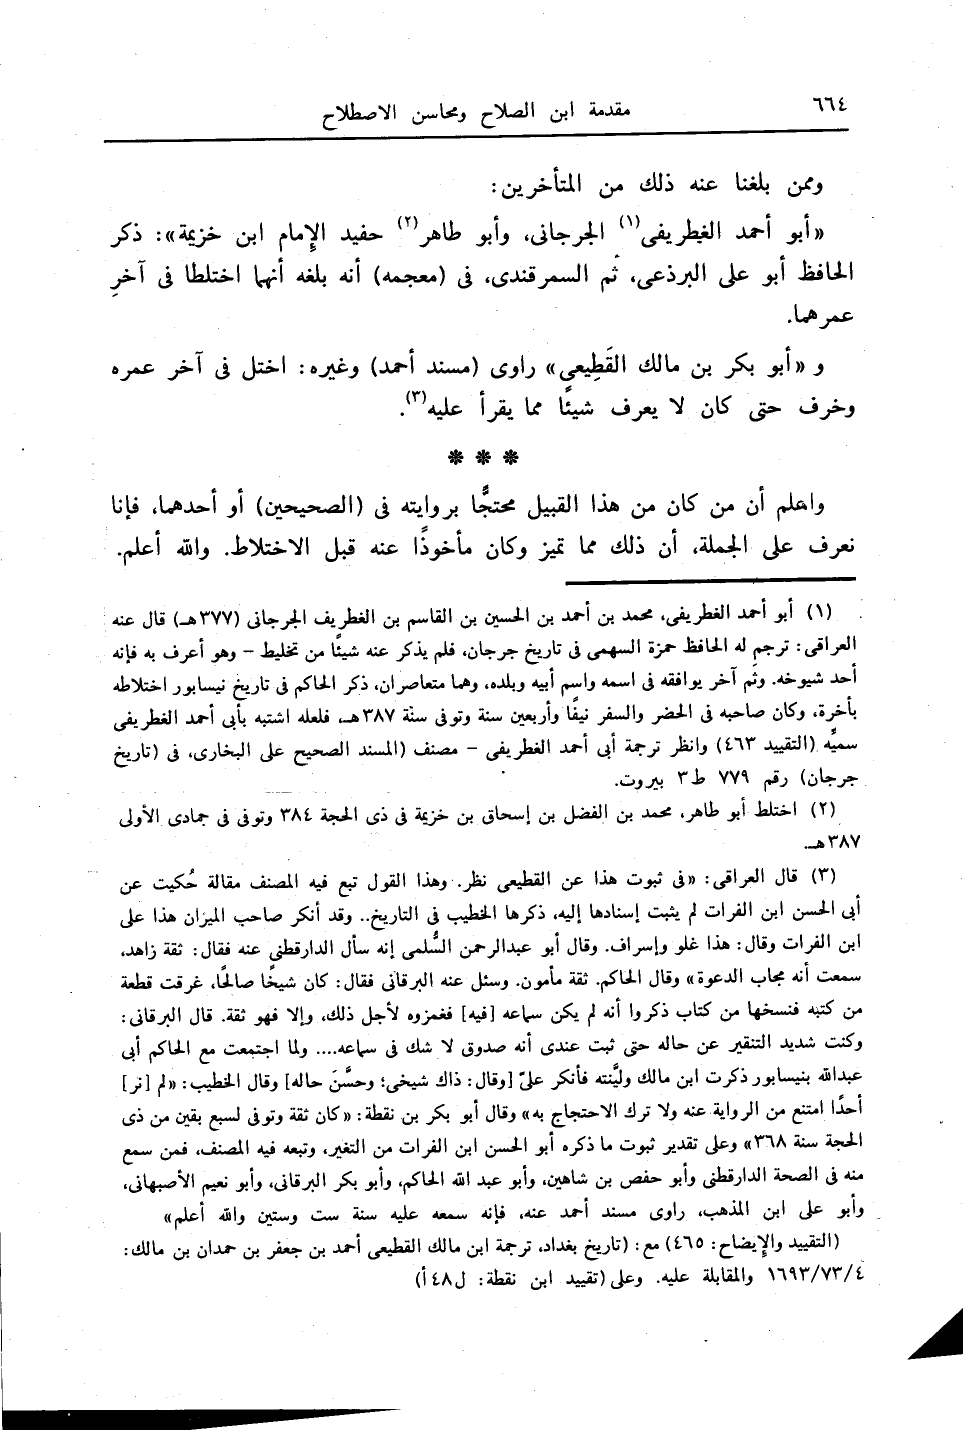 ٦٦٤
مقدمة ابن الصلاح ومحاسن الاصطلاح
وممن بلغنا عنه ذلك من المتأخرين:
«أبو أحمد الغطريفى(١) الجرجانى، وأبو طاهر(٢) حفيد الإمام ابن خزيمة»: ذكر
الحافظ أبو على البرذعى، ثم السمرقندى، فى (معجمه) أنه بلغه أنهما اختلطا فى آخرِ
عمرهما.
و «أبو بكر بن مالك القَطِيعي» راوى (مسند أحمد) وغيره: اختل فى آخر عمره
وخرف حتى كان لا يعرف شيئًا مما يقرأ عليه(٣).
*** 
واعلم أن من كان من هذا القبيل محتجًّا بروايته فى (الصحيحين) أو أحدهما، فإنا
نعرف على الجملة، أن ذلك مما تميز وكان مأخوذًا عنه قبل الاختلاط. والله أعلم.
(١) أبو أحمد الغطريفى، محمد بن أحمد بن الحسين بن القاسم بن الغطريف الجرجانى (٣٧٧هـ) قال عنه
العراقى: ترجم له الحافظ حمزة السهمى فى تاريخ جرجان، فلم يذكر عنه شيئًا من تخليط - وهو أعرف به فإنه
أحد شيوخه. وثَم آخر يوافقه فى اسمه واسم أبيه وبلده، وهما متعاصران، ذكر الحاكم فى تاريخ نيسابور اختلاطه
بأخرة، وكان صاحبه فى الحضر والسفر نيفًا وأربعين سنة وتوفى سنة ٣٨٧هـ، فلعله اشتبه بأبى أحمد الغطريفى
سميَّه (التقييد ٤٦٣) وانظر ترجمة أبى أحمد الغطريفى - مصنف (المسند الصحيح على البخارى، فى (تاريخ
جرجان) رقم ٧٧٩ ط٣ بيروت.
(٢) اختلط أبو طاهر، محمد بن الفضل بن إسحاق بن خزيمة فى ذى الحجة ٣٨٤ وتوفى فى جمادى الأولى
٣٨٧هـ.
(٣) قال العراقى: «فى ثبوت هذا عن القطيعى نظر. وهذا القول تبع فيه المصنف مقالة حُكيت عن
أبى الحسن ابن الفرات لم يثبت إسنادها إليه، ذكرها الخطيب فى التاريخ.. وقد أنكر صاحب الميزان هذا على
ابن الفرات وقال: هذا غلو وإسراف. وقال أبو عبدالرحمن السُّلمى إنه سأل الدارقطنى عنه فقال: ثقة زاهد،
سمعت أنه مجاب الدعوة» وقال الحاكم. ثقة مأمون. وسئل عنه البرقانى فقال: كان شيخًا صالحًا، غرقت قطعة
من كتبه فنسخها من كتاب ذكروا أنه لم يكن سماعه [فيه] فغمزوه لأجل ذلك، وإلا فهو ثقة. قال البرقانى:
وكنت شديد التنقير عن حاله حتى ثبت عندى أنه صدوق لا شك فى سماعه.... ولما اجتمعت مع الحاكم أبى
عبدالله بنيسابور ذكرت ابن مالك وليَّنته فأنكر علىّ [وقال: ذاك شيخى؛ وحسَّنَ حاله] وقال الخطيب: «لم [نر]
أحدًا امتنع من الرواية عنه ولا ترك الاحتجاج به» وقال أبو بكر بن نقطة: «كان ثقة وتوفى لسبع بقين من ذى
الحجة سنة ٣٦٨» وعلى تقدير ثبوت ما ذكره أبو الحسن ابن الفرات من التغير، وتبعه فيه المصنف، فمن سمع
منه فى الصحة الدارقطنى وأبو حفص بن شاهين، وأبو عبد الله الحاكم، وأبو بكر البرقانى، وأبو نعيم الأصبهانى،
وأبو على ابن المذهب، راوى مسند أحمد عنه، فإنه سمعه عليه سنة ست وستين والله أعلم»
(التقييد والإيضاح: ٤٦٥) مع: (تاريخ بغداد، ترجمة ابن مالك القطيعى أحمد بن جعفر بن حمدان بن مالك:
١٦٩٣/٧٣/٤ والمقابلة عليه. وعلى (تقييد ابن نقطة: ل٤٨أ)